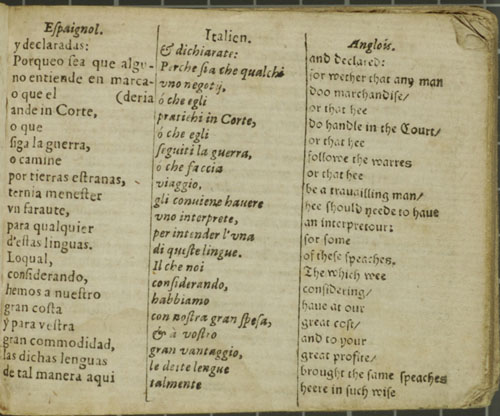 Espaignol.
y declaradas:
Porqueo sea que algu-
no entiende en marca-
o que el (deria
ande in Corte,
o que
siga la guerra,
o camine
por tierras estranas,
ternia menester
vn faraute,
para qualquier
d'estas linguas.
Loqual,
considerando,
hemos a nuestro
gran costa
y para vestra
gran commodidad,
las dichas lenguas
de tal manera aqui
Italien.
& dichiarate:
Perche sia che qualchi
vno negotij,
ò che egli
pratichi in Corte,
ò che egli
seguiti la guerra,
ò che faccia
viaggio,
gli conuiene hauere
vno interprete,
per intender l'vna
di queste lingue.
Il che noi
considerando,
habbiamo
con nostra gran spesa,
& à vostro
gran vantaggio,
le dette lengue
talmente
Anglois.
and declared:
for wether that any man
doo marchandise/
or that hee
do handle in the Court/
or that hee
followe the warres
or that hee
be a trauailling man/
hee should neede to haue
an interpretour:
for some
of these speaches.
The which wee
considering/
haue at our
great cost/
and to your
great profite/
brought the same speaches
heere in such wise